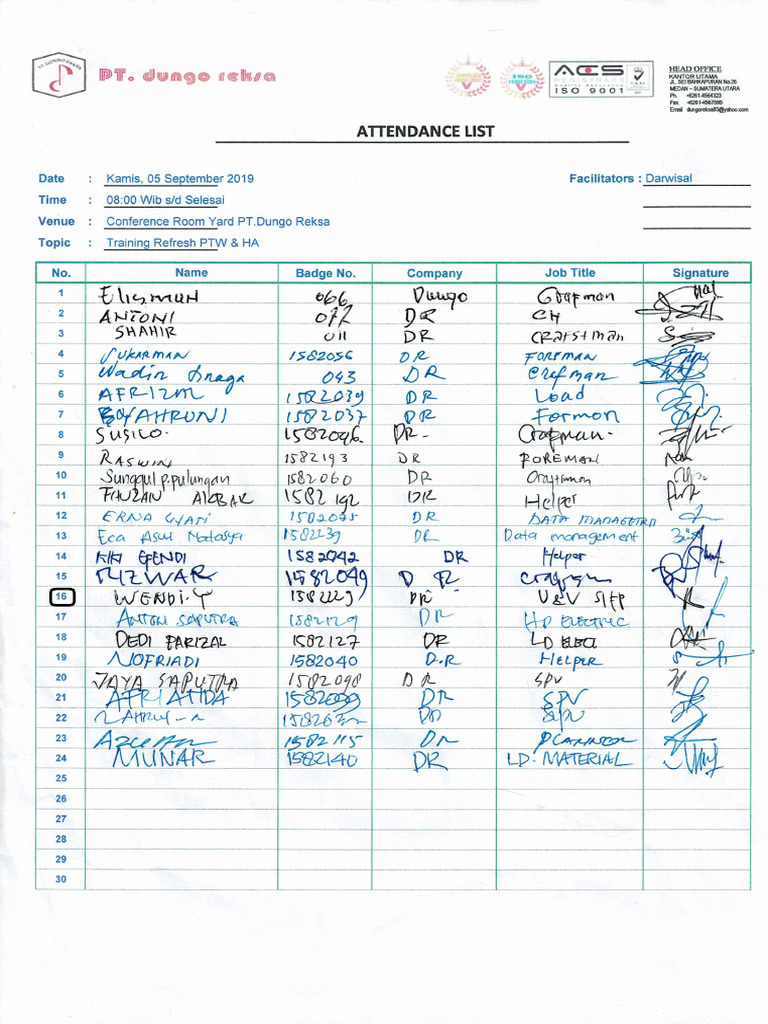 PT. DUNGO REKSA
PT. dungo reksa
ISO 14001:2004
ACS
REGISTRARS
ISO 9001
HEAD OFFICE
KANTOR UTAMA
JL. SEI BAHKAPURAN No.26
MEDAN – SUMATERA UTARA
Ph. +6261-4564323
Fax +6261-4567595
Email dungoreksa83@yahoo.com
ATTENDANCE LIST
Date : Kamis, 05 September 2019 Facilitators : Darwisal
Time : 08:00 Wib s/d Selesai
Venue : Conference Room Yard PT.Dungo Reksa
Topic : Training Refresh PTW & HA
No. Name Badge No. Company Job Title Signature
1 Elisman 066 Dungo Grafman
2 ANTONI 077 DR CH
3 SHAHIR 011 DR CRAFSTMAN
4 SUKARMAN 1582056 DR FOREMAN
5 Wadin 043 DR Crefman
6 AFRIZM 1582039 DR Load
7 BOYAHRONI 1582037 DR Formon
8 SUSILO. 1582096 DR- Crapman-
9 RASWIN 1582193 DR FOREMAN
10 Sunggul p.pulungan 1582060 DR
11 FAUZAN AKBAR 1582192 DR Helper
12 ERNA 1582075 DR
13 Eca Asri Natasya 1582239 DR Data management
14 KIKI EFENDI 1582042 DR Helper
15 RIZWAR 1582049 D R
16 WENDI-Y DR
17 ANTON SAPUTRA DR HD ELECTRIC
18 DEDI FARIZAL 1582127 DR LD ELECT
19 NOFRIADI 1582040 D.R Helper
20 JAYA SAPUTRA 1582098 DR SPV
21 AFRIANDA DR SPV
22 DR SPV
23 1582115 DR PLANNER
24 MUNAR 1582140 DR LD. MATERIAL
25
26
27
28
29
30